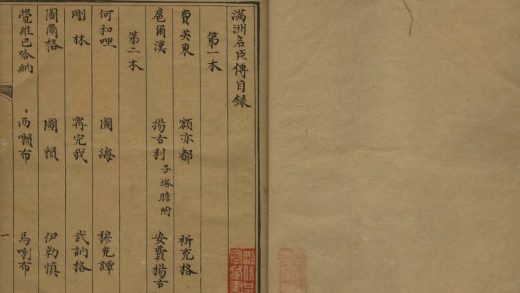 滿洲名臣傳目録
第一本
費英東 額亦都
扈爾漢 揚古利 子塔瞻附 安費揚古
第二本
何和哩 圖海 穆克譚
剛林 寗完我 武訥格
圖爾格 圖賴 伊勒慎
覺羅巴哈納 西喇布
一